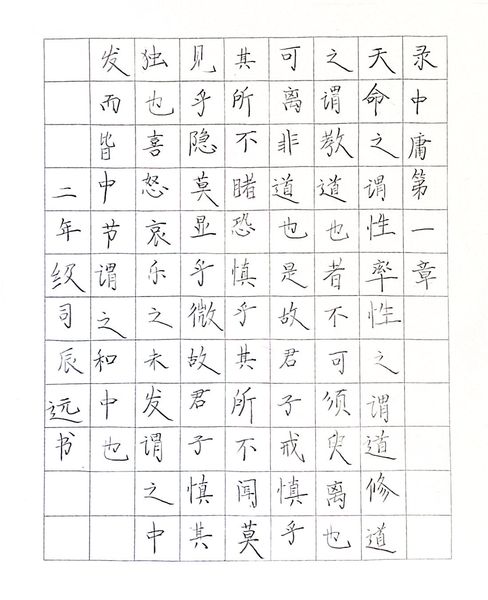 录中庸第一章
天命之谓性率性之谓道修道
之谓教道也者不可须臾离也
可离非道也是故君子戒慎乎
其所不睹恐慎乎其所不闻莫
见乎隐莫显乎微故君子慎其
独也喜怒哀乐之未发谓之中
发而皆中节谓之和中也
二年级司辰远书